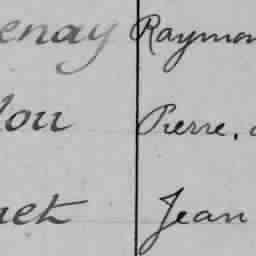 enay Raymon
lou Pierre,
uet Jean